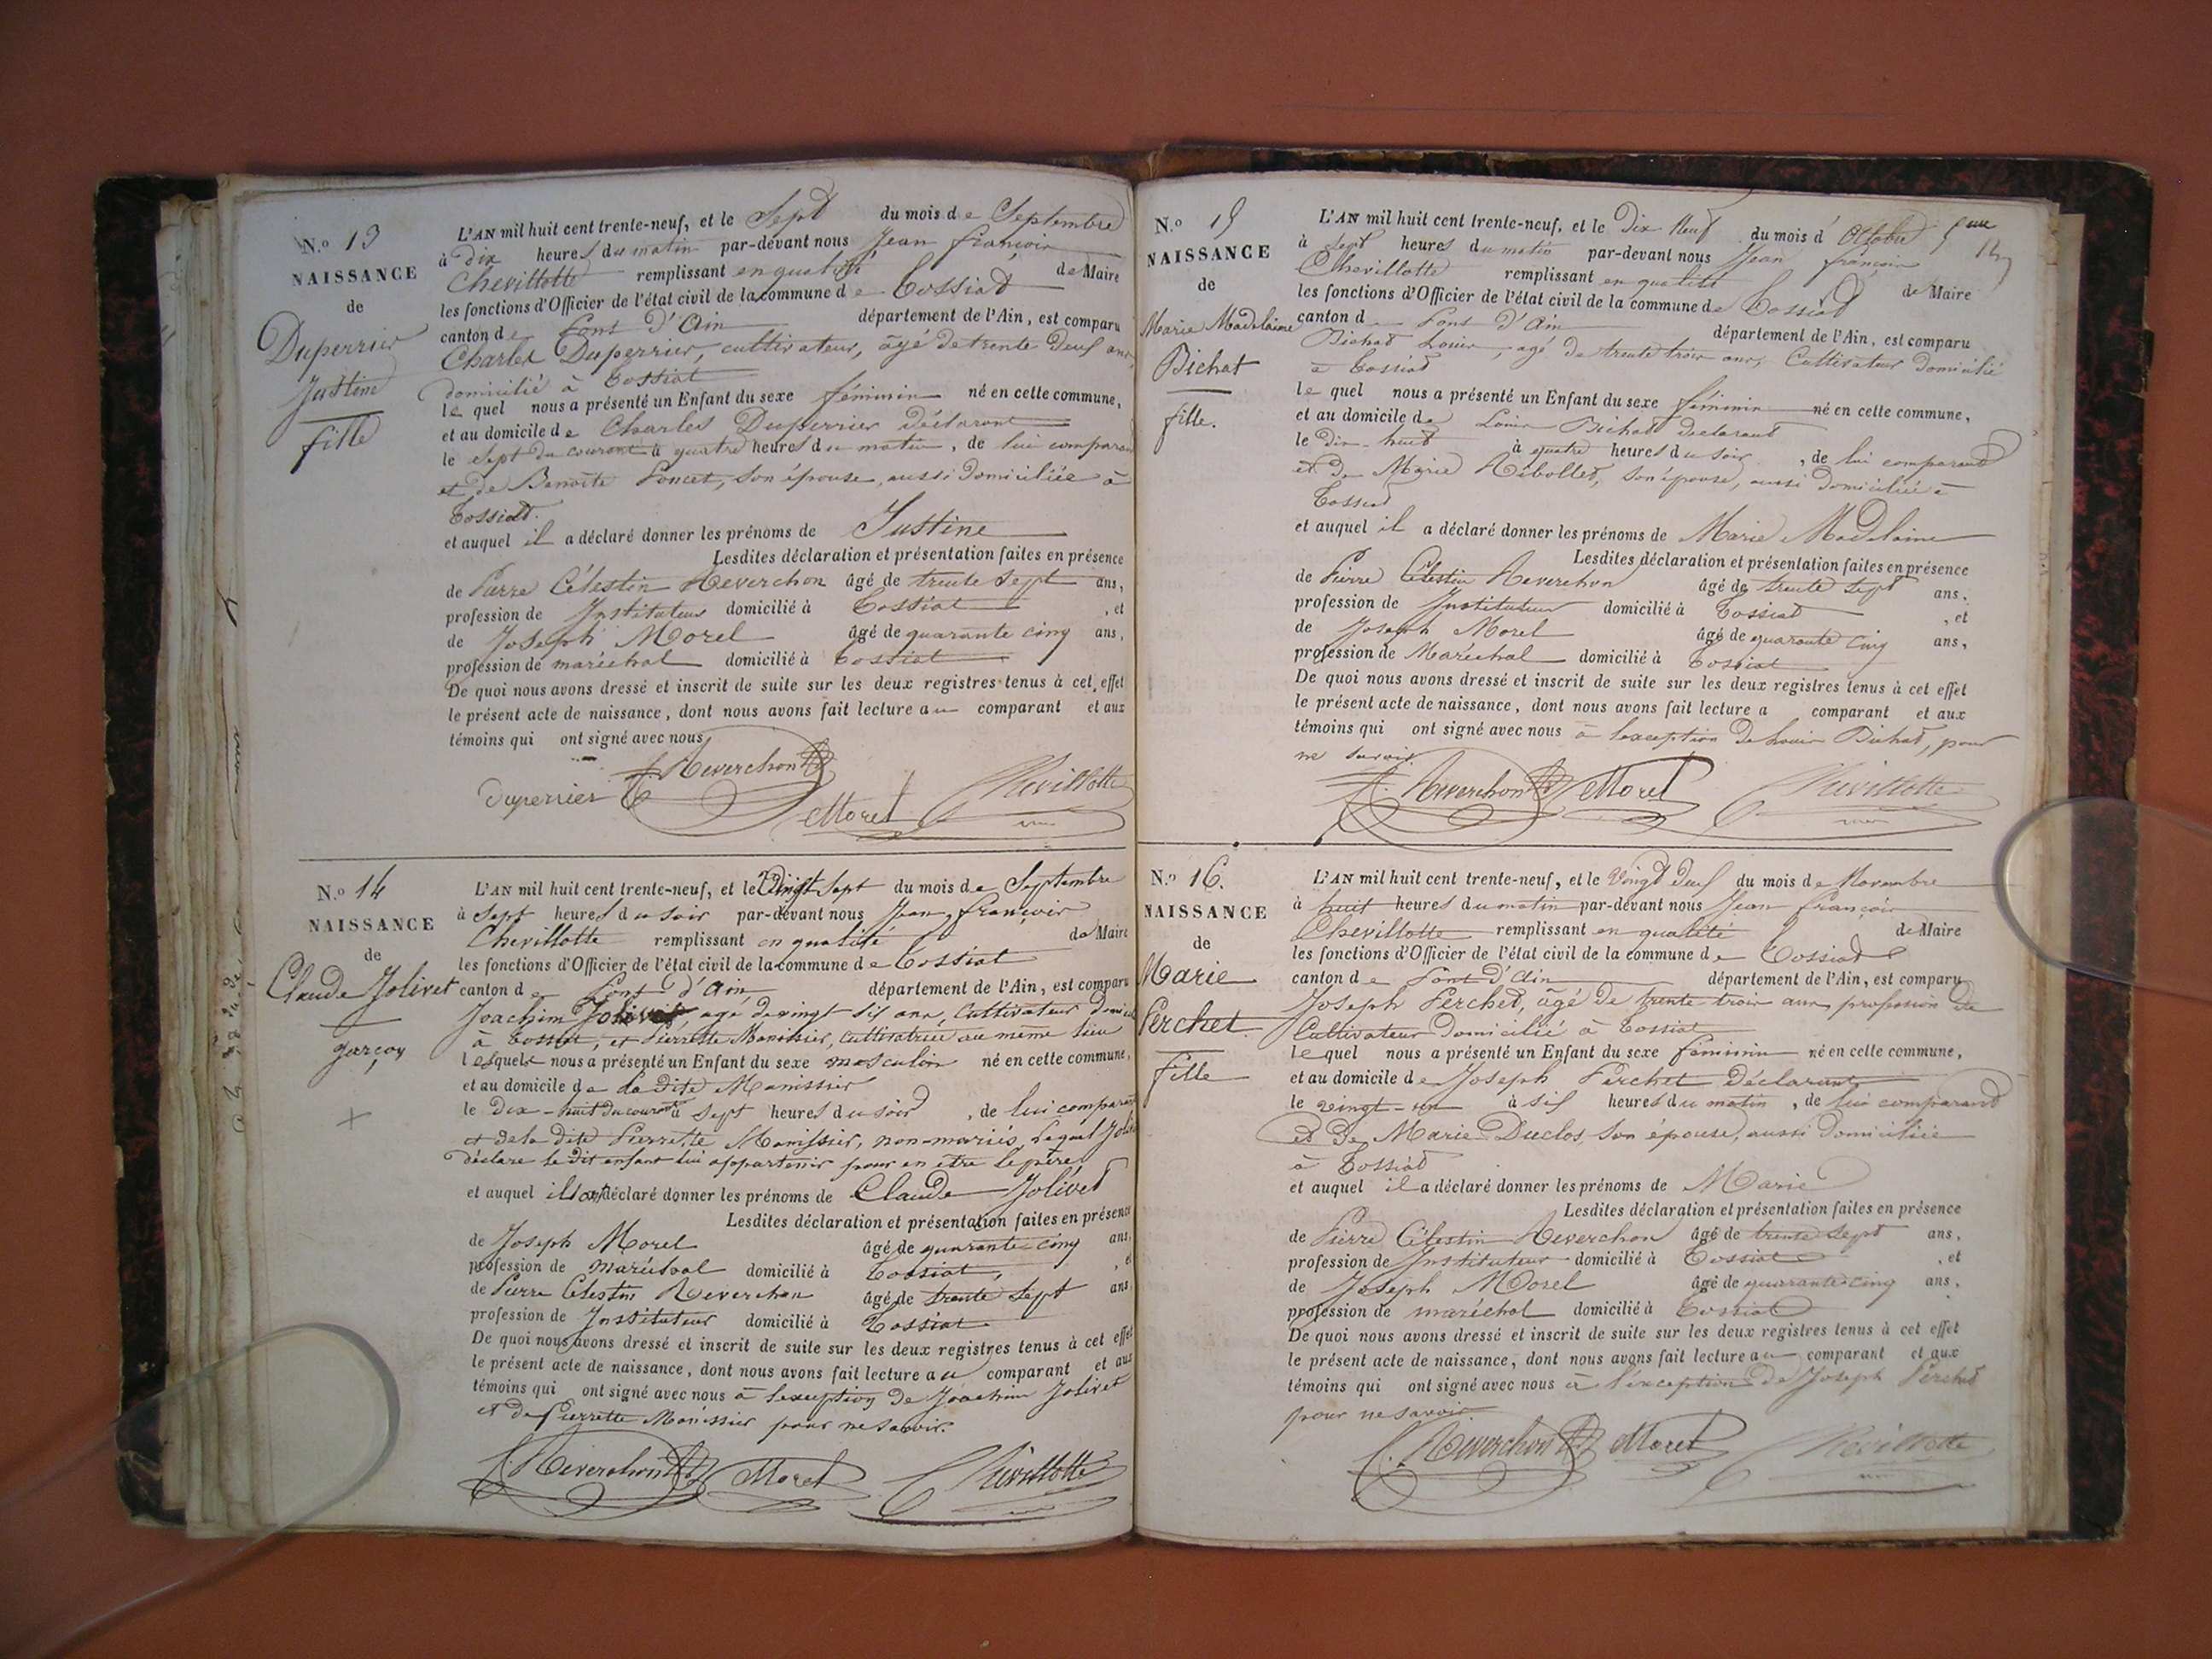 N.o 13
NAISSANCE
de
Duperrier
Justine
fille
L'AN mil huit cent trente-neuf, et le Sept du mois de Septembre
à dix heures du matin par-devant nous Jean françois
Chevillotte remplissant en qualité de Maire
les fonctions d'Officier de l'état civil de la commune de Tossiat
canton de Pont d'Ain département de l'Ain, est comparu
Charles Duperrier, cultivateur, âgé de trente deux ans
domicilié à Tossiat
lequel nous a présenté un Enfant du sexe féminin né en cette commune,
et au domicile de Charles Duperrier déclarant
le Sept du courant à quatre heures du matin, de lui comparant
et de Benoîte Poncet, son épouse, aussi domiciliée à
Tossiat.
et auquel il a déclaré donner les prénoms de Justine
Lesdites déclaration et présentation faites en présence
de Pierre Célestin Reverchon âgé de trente sept ans,
profession de Instituteur domicilié à Tossiat, et
de Joseph Morel âgé de quarante cinq ans,
profession de maréchal domicilié à Tossiat
De quoi nous avons dressé et inscrit de suite sur les deux registres tenus à cet effet
le présent acte de naissance, dont nous avons fait lecture au comparant et aux
témoins qui ont signé avec nous
duperrier Reverchon
Morel Chevillotte
N.o 14
NAISSANCE
de
Claude Jolivet
garçon
L'AN mil huit cent trente-neuf, et le Vingt Sept du mois de Septembre
à Sept heures du soir par-devant nous Jean françois
Chevillotte remplissant en qualité de Maire
les fonctions d'Officier de l'état civil de la commune de Tossiat
canton de Pont d'Ain département de l'Ain, est comparu
Joachim Jolivet, âgé de vingt six ans, Cultivateur domicil
à Tossiat, et Pierrette Manissier, cultivatrice au même lieu
lesquels nous a présenté un Enfant du sexe masculin né en cette commune,
et au domicile de la dite Manissier
le Dix-huit du courant à sept heures du soir, de lui comparant
et de la dite Pierrette Manissier, non-mariés, lequel Jolivet
déclare le dit enfant lui appartenir pour en être le père
et auquel ils ont déclaré donner les prénoms de Claude Jolivet
Lesdites déclaration et présentation faites en présence
de Joseph Morel âgé de quarante cinq ans,
profession de maréchal domicilié à Tossiat, et
de Pierre Célestin Reverchon âgé de trente sept ans
profession de Instituteur domicilié à Tossiat
De quoi nous avons dressé et inscrit de suite sur les deux registres tenus à cet effet
le présent acte de naissance, dont nous avons fait lecture au comparant et aux
témoins qui ont signé avec nous à l'exception de Joachim Jolivet
et de Pierrette Manissier pour ne savoir.
Reverchon Morel Chevillotte
N.o 15
NAISSANCE
de
Marie Madelaine
Bichat
fille.
L'AN mil huit cent trente-neuf, et le Dix Neuf du mois d'Octobre
à Sept heures du matin par-devant nous Jean françois
Chevillotte remplissant en qualité de Maire
les fonctions d'Officier de l'état civil de la commune de Tossiat
canton de Pont d'Ain département de l'Ain, est comparu
Bichat Louis, âgé de trente trois ans, Cultivateur domicilié
à Tossiat
lequel nous a présenté un Enfant du sexe féminin né en cette commune,
et au domicile de Louis Bichat declarant
le dix-huit à quatre heures du soir, de lui comparant
et de Marie Rebollet, son épouse, aussi domiciliée à
Tossiat
et auquel il a déclaré donner les prénoms de Marie Madelaine
Lesdites déclaration et présentation faites en présence
de Pierre Célestin Reverchon âgé de trente sept ans,
profession de Instituteur domicilié à Tossiat, et
de Joseph Morel âgé de quarante cinq ans,
profession de Maréchal domicilié à Tossiat
De quoi nous avons dressé et inscrit de suite sur les deux registres tenus à cet effet
le présent acte de naissance, dont nous avons fait lecture a comparant et aux
témoins qui ont signé avec nous à l'exception de Louis Bichat, pour
ne savoir.
Reverchon Morel Chevillotte
N.o 16.
NAISSANCE
de
Marie
Perchet
fille
L'AN mil huit cent trente-neuf, et le Vingt deux du mois de Novembre
à huit heures du matin par-devant nous Jean françois
Chevillotte remplissant en qualité de Maire
les fonctions d'Officier de l'état civil de la commune de Tossiat
canton de Pont d'Ain département de l'Ain, est comparu
Joseph Perchet, âgé de trente trois ans profession de
Cultivateur domicilié à Tossiat
lequel nous a présenté un Enfant du sexe féminin né en cette commune,
et au domicile de Joseph Perchet Déclarant
le vingt-un à six heures du matin, de lui comparant
et de Marie Duclos, son épouse, aussi domiciliée
à Tossiat
et auquel il a déclaré donner les prénoms de Marie
Lesdites déclaration et présentation faites en présence
de Pierre Célestin Reverchon âgé de trente sept ans,
profession de Instituteur domicilié à Tossiat, et
de Joseph Morel âgé de quarante cinq ans,
profession de maréchal domicilié à Tossiat
De quoi nous avons dressé et inscrit de suite sur les deux registres tenus à cet effet
le présent acte de naissance, dont nous avons fait lecture au comparant et aux
témoins qui ont signé avec nous à l'exception de Joseph Perchet
pour ne savoir.
Reverchon Morel Chevillotte